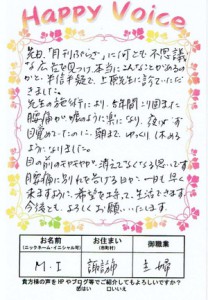 Happy Voice
先日、「月刊ぷらざ」に何とも不思議
な広告を見つけ、本当にこんなことがあるの
かと、半信半疑で、上原先生に診ていただ
きました。
先生の施術により、5年間も悩ました
腰痛が、嘘のように楽になり、夜
目覚めていたのに、朝まで、ゆっくり休める
ようになりました。
目の前のモヤモヤが、消えてなくなる思いです
腰痛に別れを告げる日が一日も早く
来ますように、希望を持って、生活できます。
今後とも、よろしくお願いいたします。
お名前 お住まい 御職業
(ニックネーム・イニシャル可) (市町村)
M.I 諏訪市 主婦
貴方様の声をHPやブログ等でご紹介してもよろしいですか?
はい 口いいえ